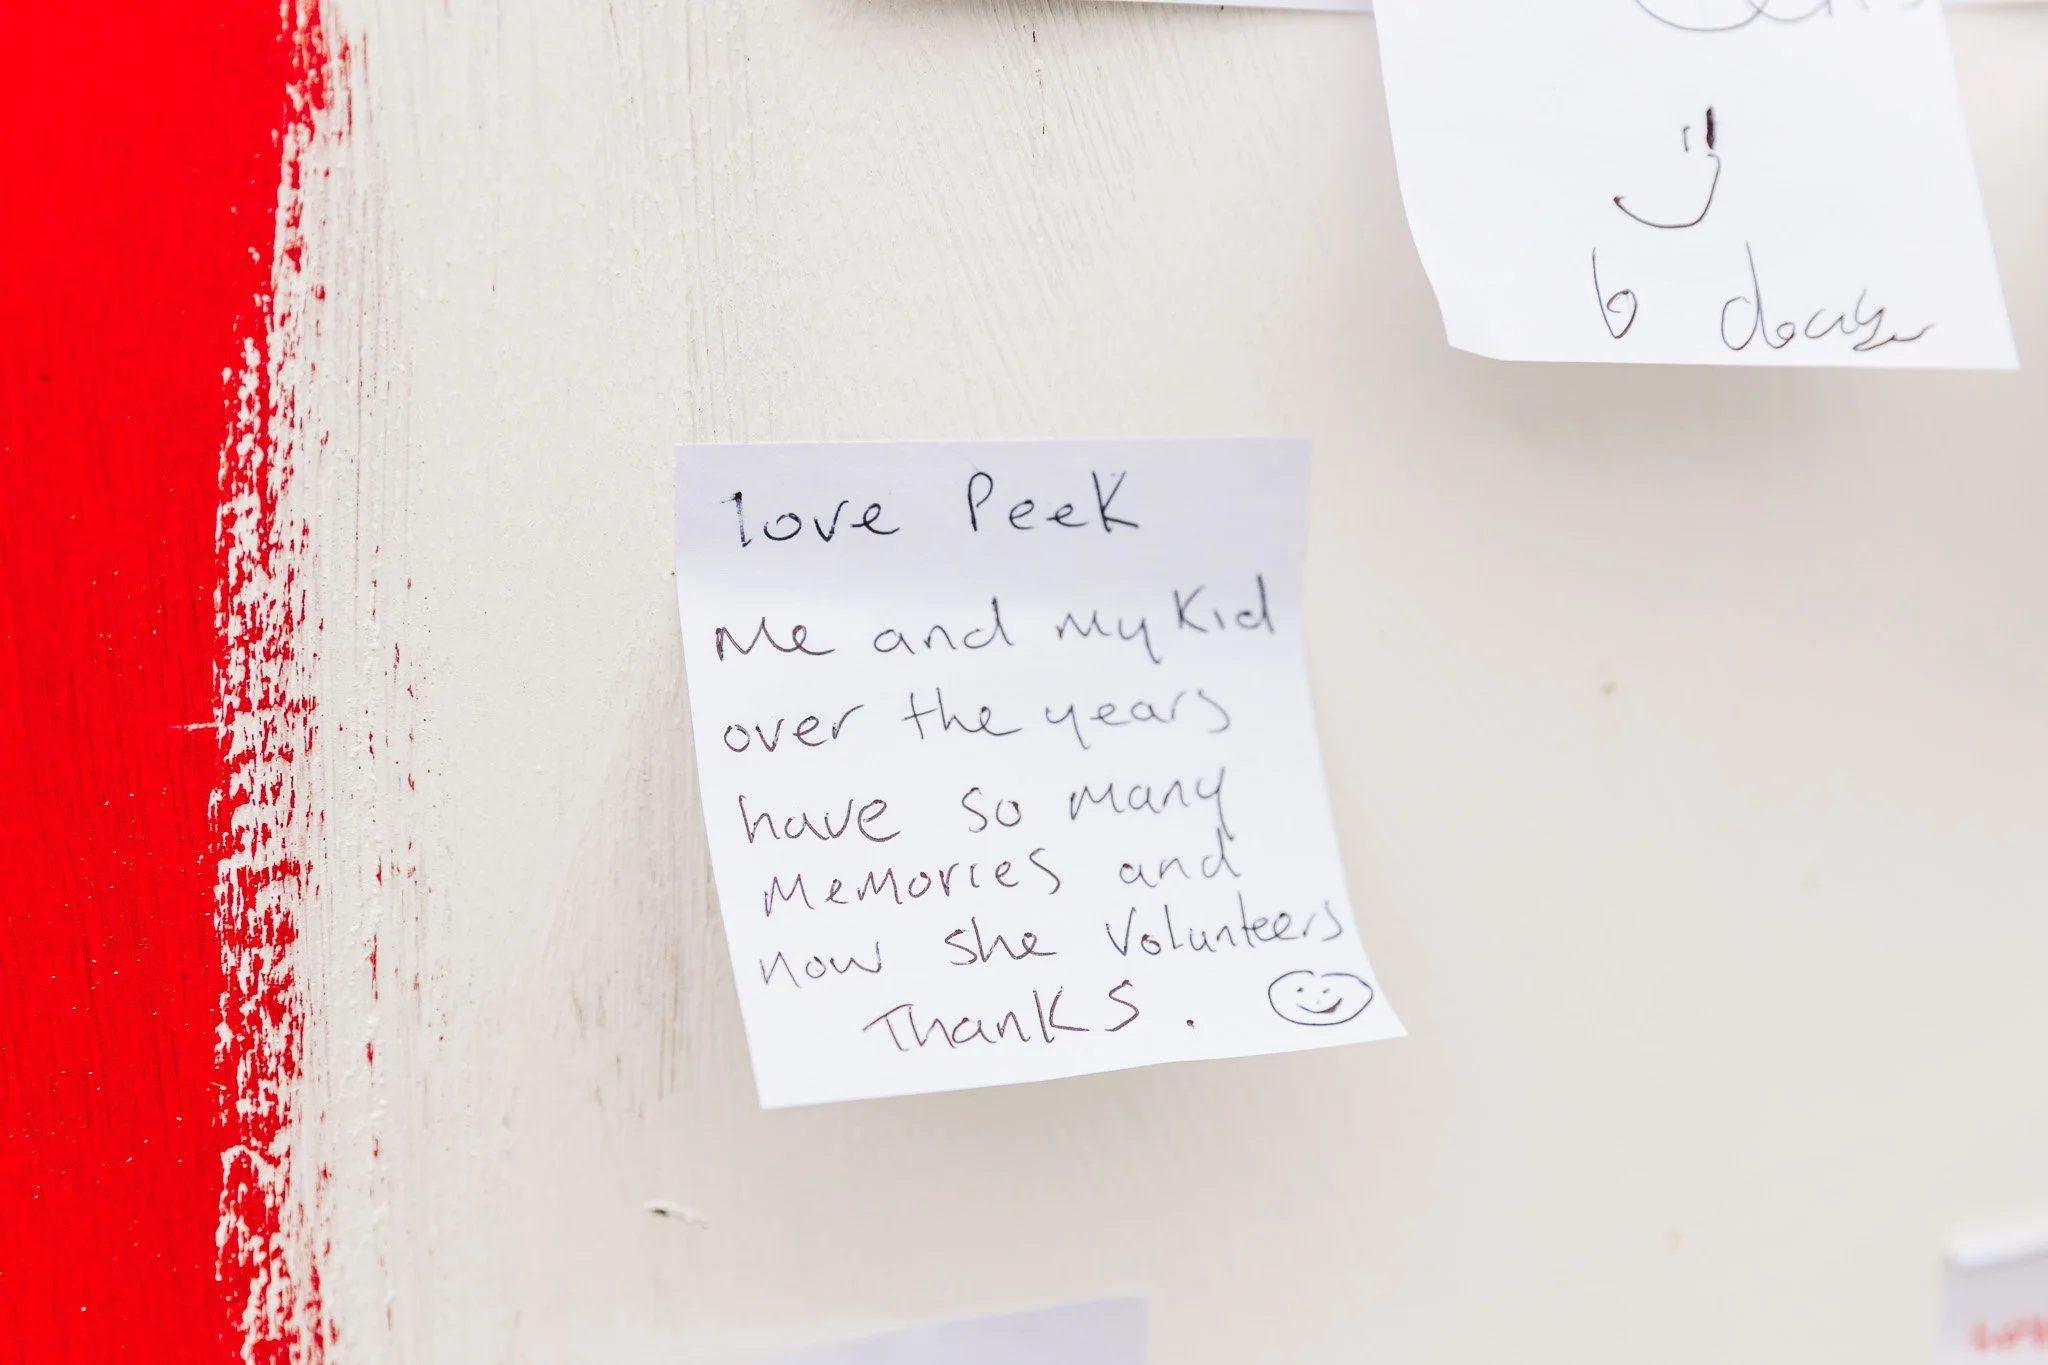 love Peek
Me and my Kid
over the years
have so many
Memories and
now she Volunteers
Thanks.